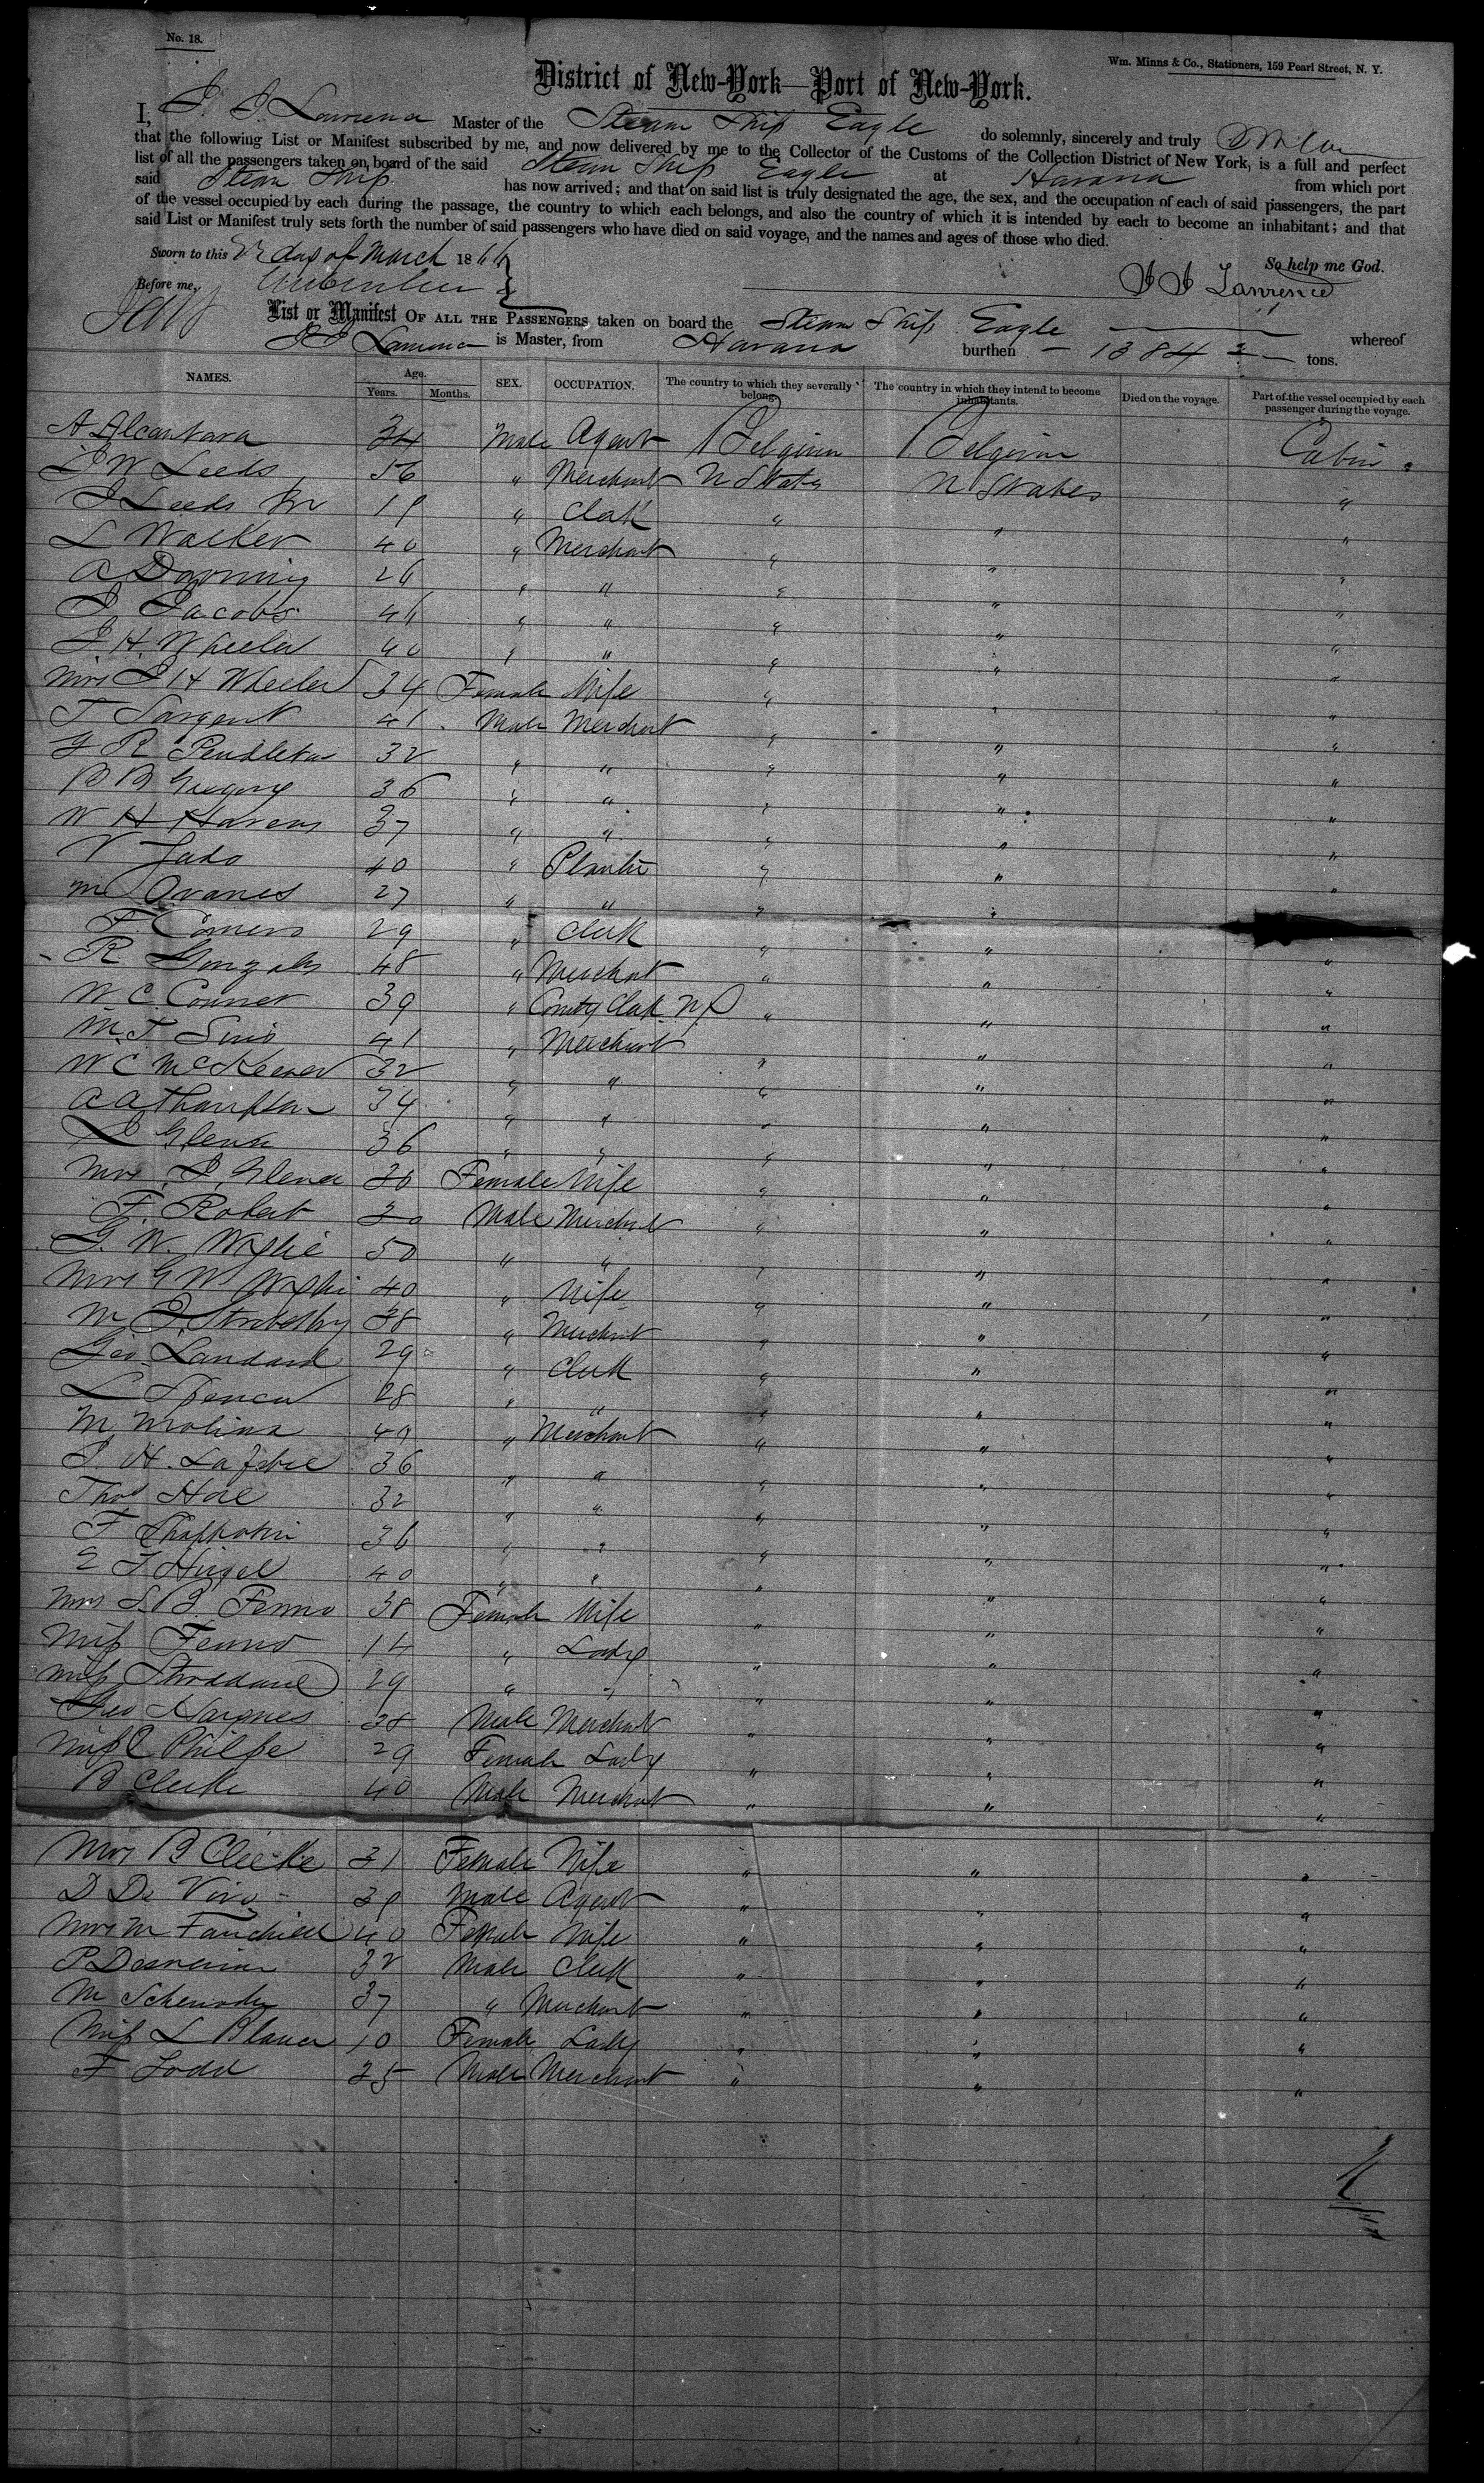 No. 18.
Wm. Minns & Co., Stationers, 159 Pearl Street, N. Y.
District of New-York—Port of New-York.
I, J. J. Lawrence Master of the Steam Ship Eagle do solemnly, sincerely and truly
that the following List or Manifest subscribed by me, and now delivered by me to the Collector of the Customs of the Collection District of New York, is a full and perfect
list of all the passengers taken on board of the said Steam Ship Eagle at Havana from which port
said Steam Ship has now arrived; and that on said list is truly designated the age, the sex, and the occupation of each of said passengers, the part
of the vessel occupied by each during the passage, the country to which each belongs, and also the country of which it is intended by each to become an inhabitant; and that
said List or Manifest truly sets forth the number of said passengers who have died on said voyage, and the names and ages of those who died.
Sworn to this day of March 1866
So help me God.
Before me,
J J Lawrence
List or Manifest OF ALL THE PASSENGERS taken on board the Steam Ship Eagle whereof
J J Lawrence is Master, from Havana burthen 1384 tons.
NAMES. Age. Years. Months. SEX. OCCUPATION. The country to which they severally belong. The country in which they intend to become inhabitants. Died on the voyage. Part of the vessel occupied by each passenger during the voyage.
A Alcantara 34 Male Agent Belgium Belgium Cabin
J W Leeds 56 " Merchant U States U States "
J Leeds Jr 19 " Clerk " " "
L Walker 40 " Merchant " " "
A Downing 26 " " " " "
J Jacobs 46 " " " " "
J. H. Wheeler 40 " " " " "
Mrs J H Wheeler 34 Female Wife " " "
T Sargent 41 Male Merchant " " "
G R Pendleton 32 " " " " "
B B Gregory 36 " " " " "
W H Havens 37 " " " " "
V 40 " Planter " " "
M 27 " " " " "
F. 29 " Clerk " " "
R Gonzales 48 " Merchant " " "
W. C. Conner 39 " County Clerk N.Y " " "
M. T. 41 " Merchant " " "
W C McKeever 32 " " " " "
A A Thompson 34 " " " " "
J Glenn 36 " " " " "
Mrs J. Glenn 30 Female Wife " " "
F. Robert 30 Male Merchant " " "
G. W. Wylie 50 " " " " "
Mrs G W Wylie 40 " Wife " " "
M J. 38 " Merchant " " "
Geo. Landard 29 " Clerk " " "
L Spencer 28 " " " " "
M Molina 40 " Merchant " " "
J. H. 36 " " " " "
Thos 32 " " " " "
F 36 " " " " "
40 " " " " "
Mrs S. B. Fenno 38 Female Wife " " "
Miss Fenno 14 " Lady " " "
Miss Stoddard 29 " " " " "
Geo 38 Male Merchant " " "
Miss 29 Female Lady " " "
B Clerke 40 Male Merchant " " "
Mrs B Clerke 31 Female Wife " " "
D De Vivo 39 Male Agent " " "
Mrs M Fairchild 40 Female Wife " " "
P 32 Male Clerk " " "
M 37 " Merchant " " "
Miss L Blanca 10 Female Lady " " "
F Todd 25 Male Merchant " " "